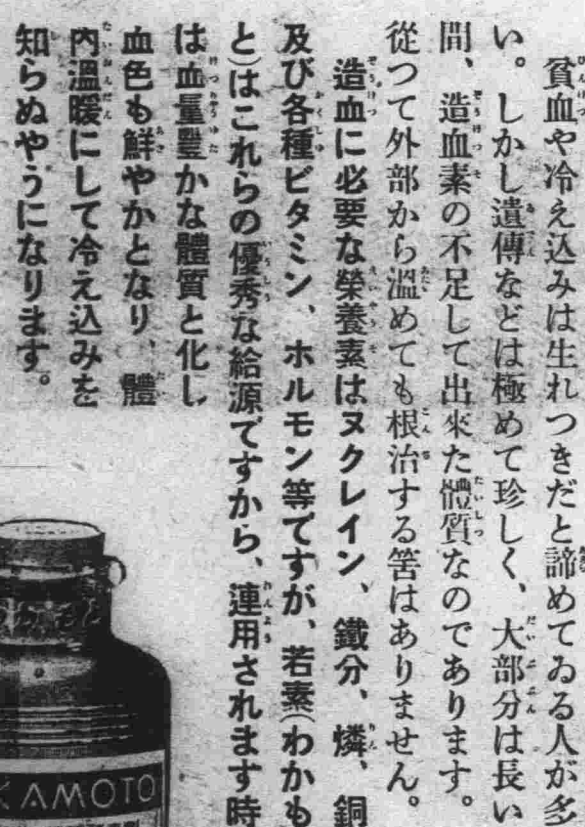 貧血や冷え込みは生れつきだと諦めてゐる人が多
い。しかし遺傳などは極めて珍しく、大部分は長い
間、造血素の不足して出來た體質なのであります。
從つて外部から溫めても根治する筈はありません。
造血に必要な榮養素はヌクレイン、鐵分、燐、銅
及び各種ビタミン、ホルモン等ですが、若素(わかも
と)はこれらの優秀な給源ですから、連用されます時
は血量豐かな體質と化し
血色も鮮やかとなり、體
內溫暖にして冷え込みを
知らぬやうになります。
わかもと
KAMOTO